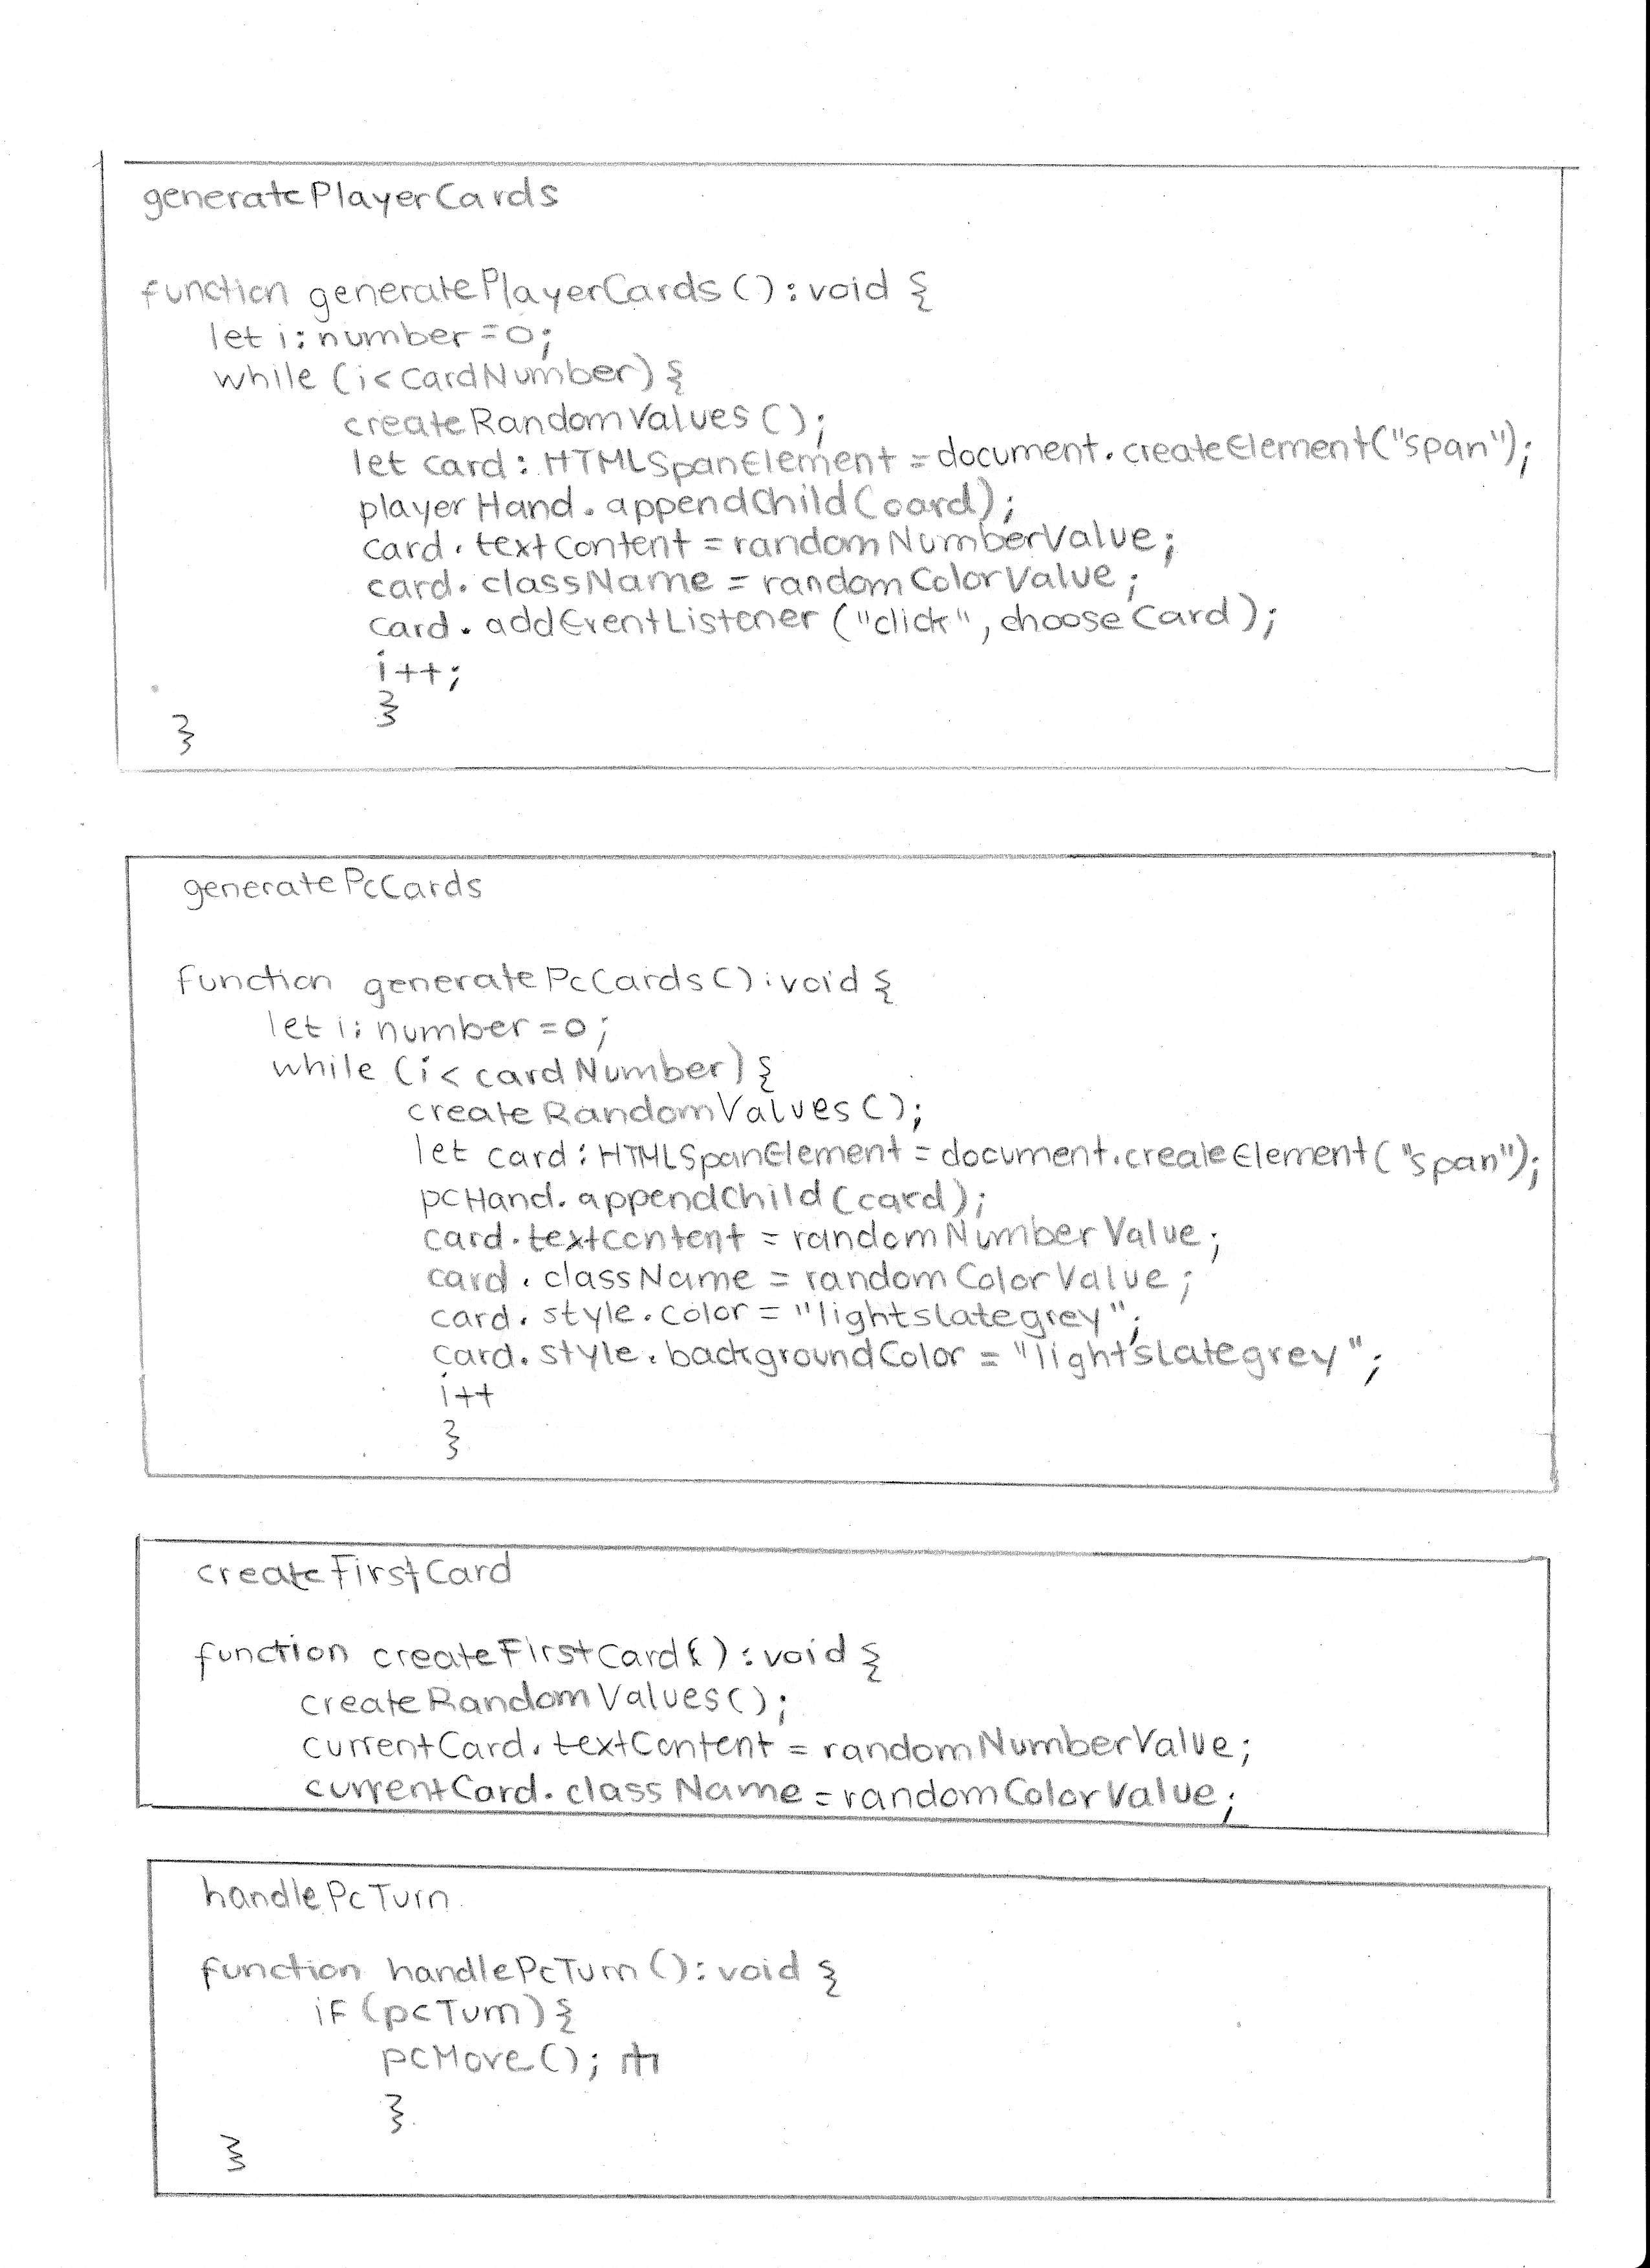 generatePlayerCards
function generatePlayerCards():void {
let i:number=0;
while (i<cardNumber) {
createRandomValues();
let card: HTMLSpanElement = document.createElement("span");
playerHand.appendChild(card);
card.textContent = randomNumberValue;
card.className = randomColorValue;
card.addEventListener("click", chooseCard);
i++;
}
}
generatePcCards
function generatePcCards():void {
let i: number=0;
while (i< cardNumber) {
createRandomValues();
let card: HTMLSpanElement = document.createElement("span");
pcHand.appendChild(card);
card.textcontent = randomNumberValue;
card.className = randomColorValue;
card.style.color = "lightslategrey";
card.style.backgroundColor = "lightslategrey";
i++
}
createFirstCard
function createFirstCard():void {
createRandomValues();
currentCard.textContent = randomNumberValue;
currentCard.className = randomColorValue;
handlePcTurn
function handlePcTurn():void {
if (pcTurn) {
pcMove();
}
}